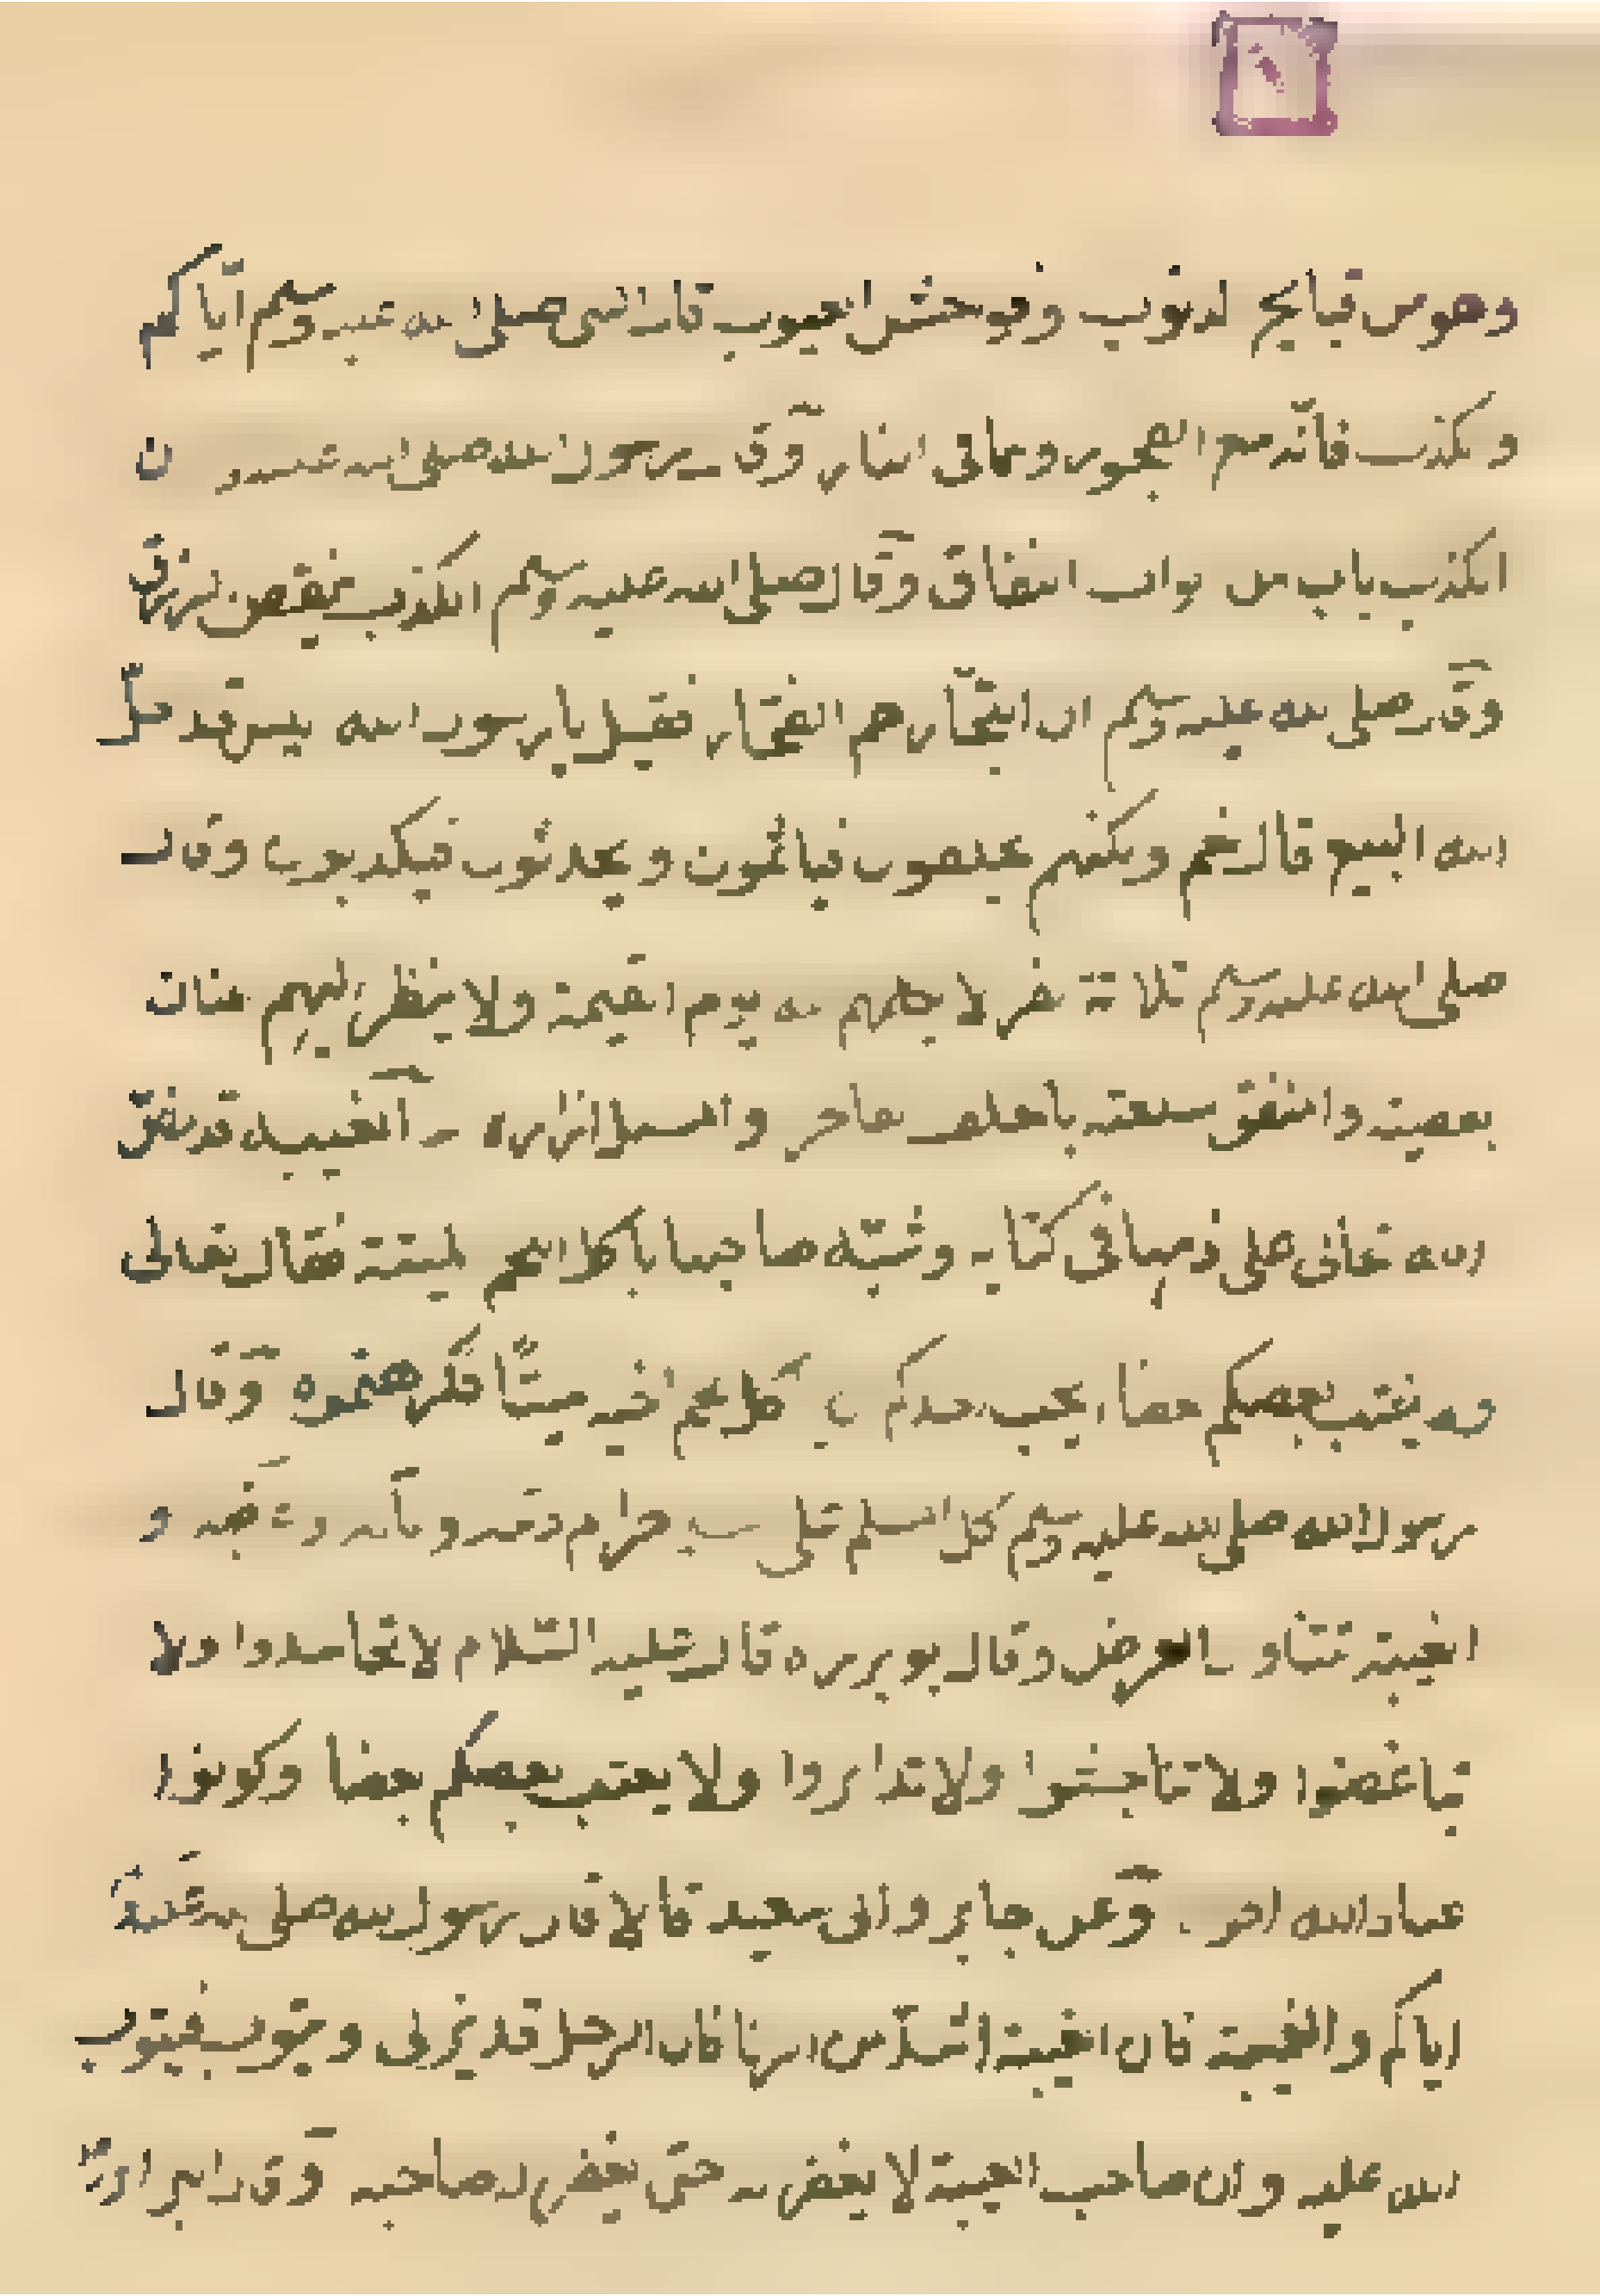 وهو من قبايح الذنوب وفواحش العيوب قال النبي صلى الله عليه وسلم اياكم
والكذب فانه مع الفجور وهما في النار وقال رسول الله صلى الله عليه وسلم ان
الكذب باب من ابواب النفاق وقال صلى الله عليه وسلم الكذب ينقص الرزق
وقال صلى الله عليه وسلم ان التجّار هم الفجّار فقيل يا رسول الله اليس قد احلّ
الله البيع قال نعم ولكنهم يحلفون فياثمون ويحدثون فيكذبون وقال
صلى الله عليه وسلم ثلاثة نفر لا يكلمهم الله يوم القيمة ولا ينظر اليهم المنان
بعطيته والمنفق سلعته بالحلف الفاجر والمسبل ازاره الغيبة قد نصّ
الله تعالى على ذمها في كتابه وشبّه صاحبها بآكل لحم الميتة فقال تعالى
ولا يغتب بعضكم بعضا ايحب احدكم ان ياكل لحم اخيه ميتًا فكرهتموه وقال
رسول الله صلى الله عليه وسلم كل المسلم على المسلم حرام دمه وماله وعرضه و
الغيبة تتناول العرض وقال ابو هريره قال عليه السّلام لا تحاسدوا ولا
تباغضوا ولا تناجشوا ولا تدابروا ولا يغتب بعضكم بعضا وكونوا
عباد الله اخوانا وعن جابر وابي سعيد قالا قال رسول الله صلى الله عليه وسلم
اياكم والغيبة فان الغيبة اشدّ من الزنا فان الرجل قد يزني ويتوب فيتوب
الله عليه وان صاحب الغيبة لا يغفر له حتى يغفر له صاحبه وقال البراء